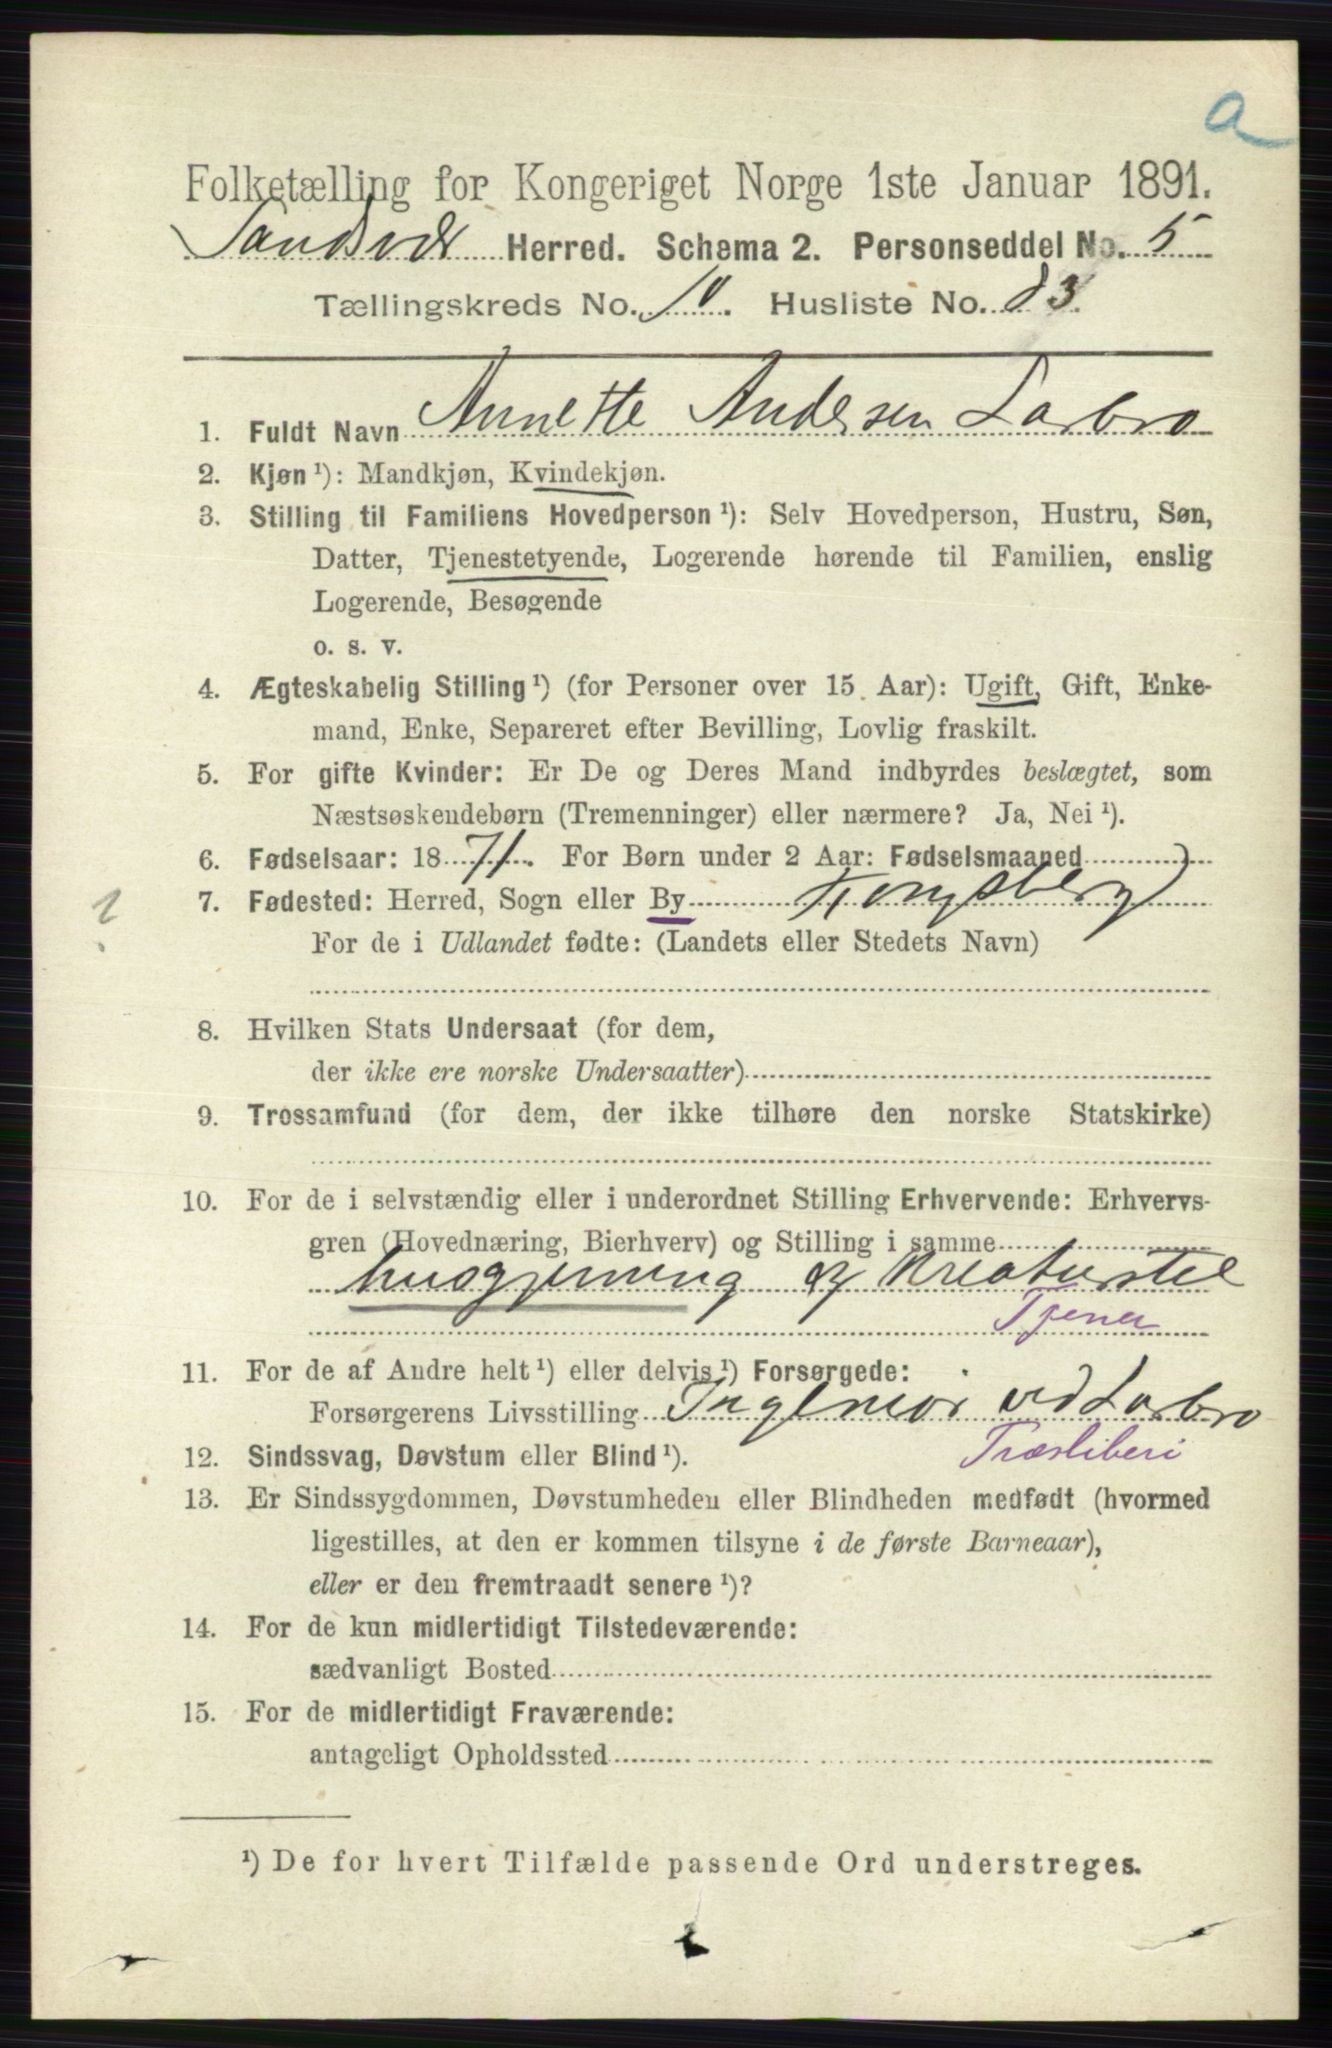 a
Folketælling for Kongeriget Norge 1ste Januar 1891.
Sandsvær Herred. Schema 2. Personseddel No. 5
Tællingskreds No. 10. Husliste No. 83.
1. Fuldt Navn Annette Andersen Labro
2. Kjøn ¹): Mandkjøn, Kvindekjøn.
3. Stilling til Familiens Hovedperson ¹): Selv Hovedperson, Hustru, Søn,
Datter, Tjenestetyende, Logerende hørende til Familien, enslig
Logerende, Besøgende
o. s. v.
4. Ægteskabelig Stilling ¹) (for Personer over 15 Aar): Ugift, Gift, Enke-
mand, Enke, Separeret efter Bevilling, Lovlig fraskilt.
5. For gifte Kvinder: Er De og Deres Mand indbyrdes beslægtet, som
Næstsøskendebørn (Tremenninger) eller nærmere? Ja, Nei ¹).
6. Fødselsaar: 1871. For Børn under 2 Aar: Fødselsmaaned
7. Fødested: Herred, Sogn eller By Kongsberg
?
For de i Udlandet fødte: (Landets eller Stedets Navn)
8. Hvilken Stats Undersaat (for dem,
der ikke ere norske Undersaatter)
9. Trossamfund (for dem, der ikke tilhøre den norske Statskirke)
10. For de i selvstændig eller i underordnet Stilling Erhvervende: Erhvervs-
gren (Hovednæring, Bierhverv) og Stilling i samme
husgjerning og Kreaturstel
Tjener
11. For de af Andre helt ¹) eller delvis ¹) Forsørgede:
Forsørgerens Livsstilling Ingeniør ved Labro
Træsliberi
12. Sindssvag, Døvstum eller Blind ¹).
13. Er Sindssygdommen, Døvstumheden eller Blindheden medfødt (hvormed
ligestilles, at den er kommen tilsyne i de første Barneaar),
eller er den fremtraadt senere ¹)?
14. For de kun midlertidigt Tilstedeværende:
sædvanligt Bosted
15. For de midlertidigt Fraværende:
antageligt Opholdssted
¹) De for hvert Tilfælde passende Ord understreges.